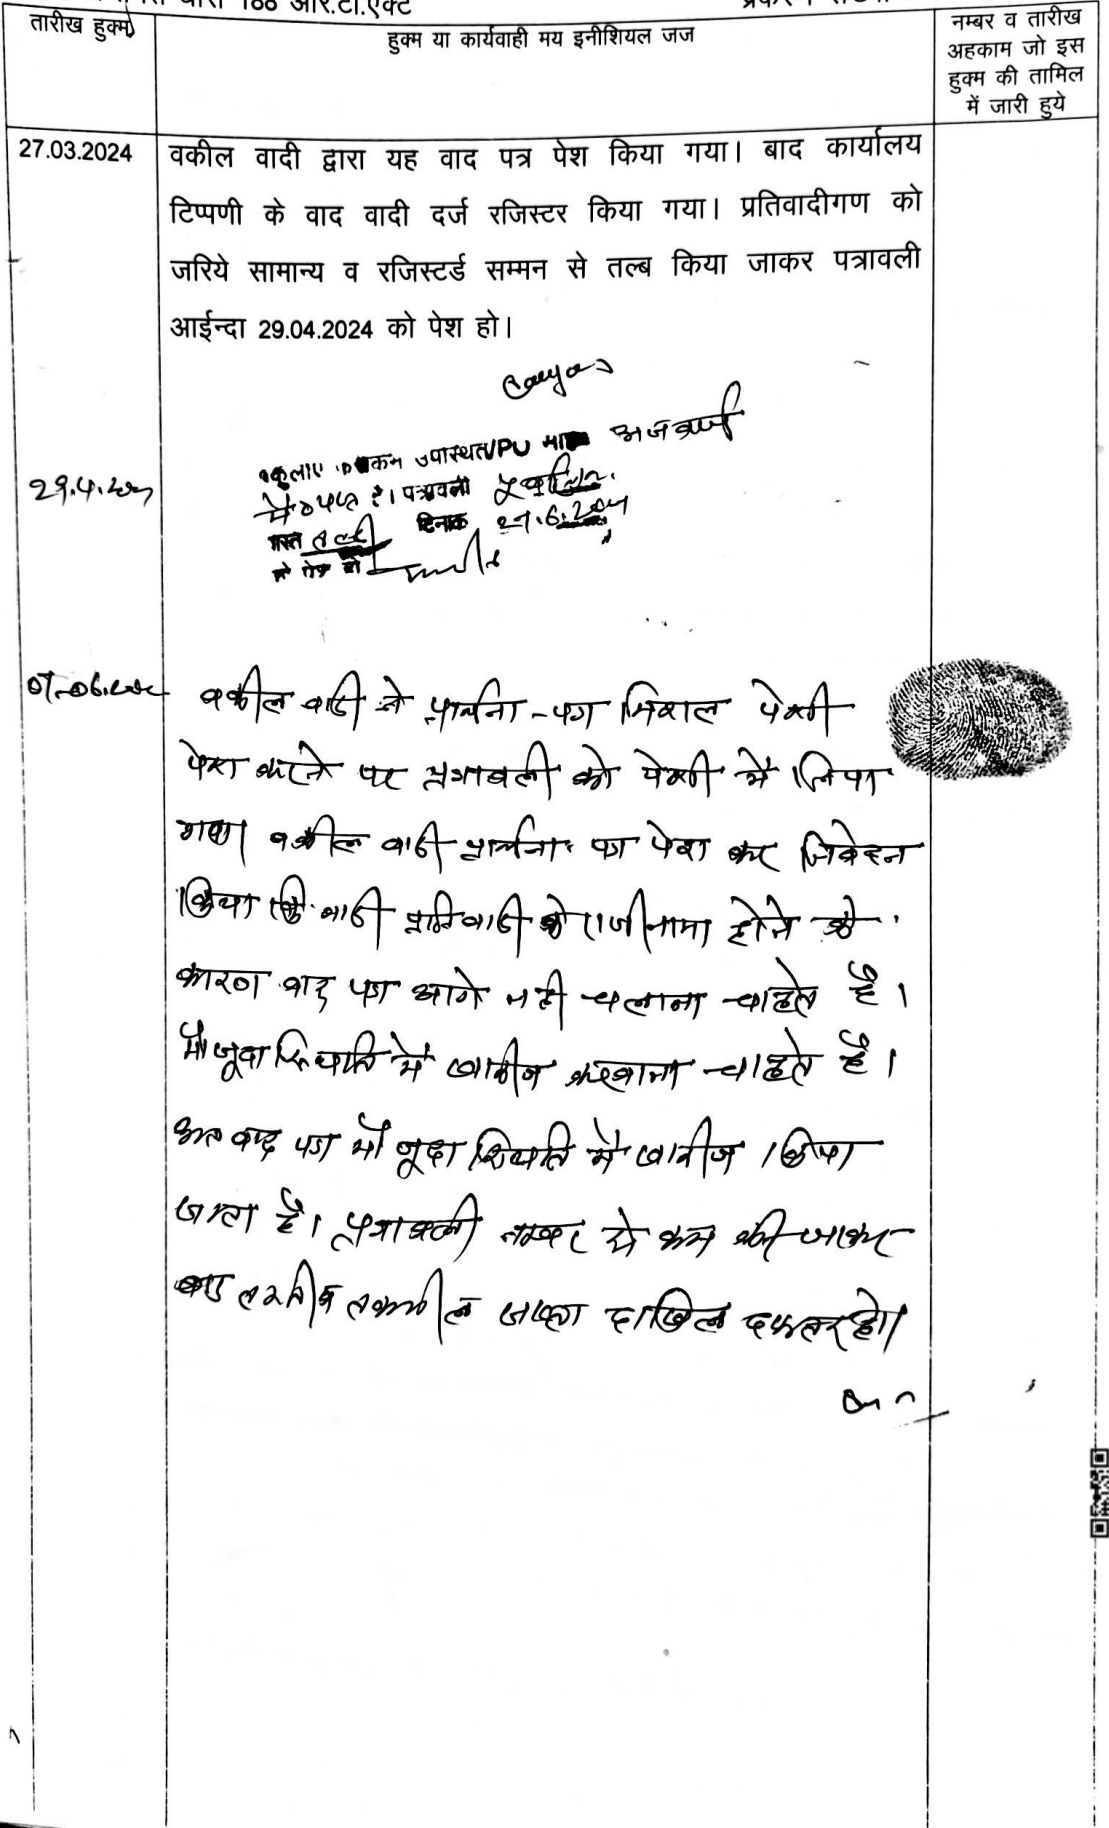 धारा 188 आर.टी.एक्ट
तारीख हुक्म
हुक्म या कार्यवाही मय इनीशियल जज
नम्बर व तारीख
अहकाम जो इस
हुक्म की तामिल
में जारी हुये
27.03.2024
वकील वादी द्वारा यह वाद पत्र पेश किया गया। बाद कार्यालय
टिप्पणी के वाद वादी दर्ज रजिस्टर किया गया। प्रतिवादीगण को
जरिये सामान्य व रजिस्टर्ड सम्मन से तल्ब किया जाकर पत्रावली
आईन्दा 29.04.2024 को पेश हो।
29.4.2024
उपस्थित/PU
है। पत्रावली
दिनांक 27.6.2024
वकील वादी ने प्रार्थना-पत्र मिशल पेशी
पेश करने पर पत्रावली को पेशी में लिया
गया। वकील वादी प्रार्थना पत्र पेश कर निवेदन
किया कि वादी प्रतिवादी के राजीनामा होने के
कारण वाद पत्र आगे नही चलाना चाहते है।
मौजूदा स्थिति में खारीज करवाना चाहते है।
अतः वाद पत्र मौजूदा स्थिति में खारीज किया
जाता है। पत्रावली नम्बर से कम की जाकर
बाद तरतीब तकमील जाब्ता दाखिल दफतर हो।